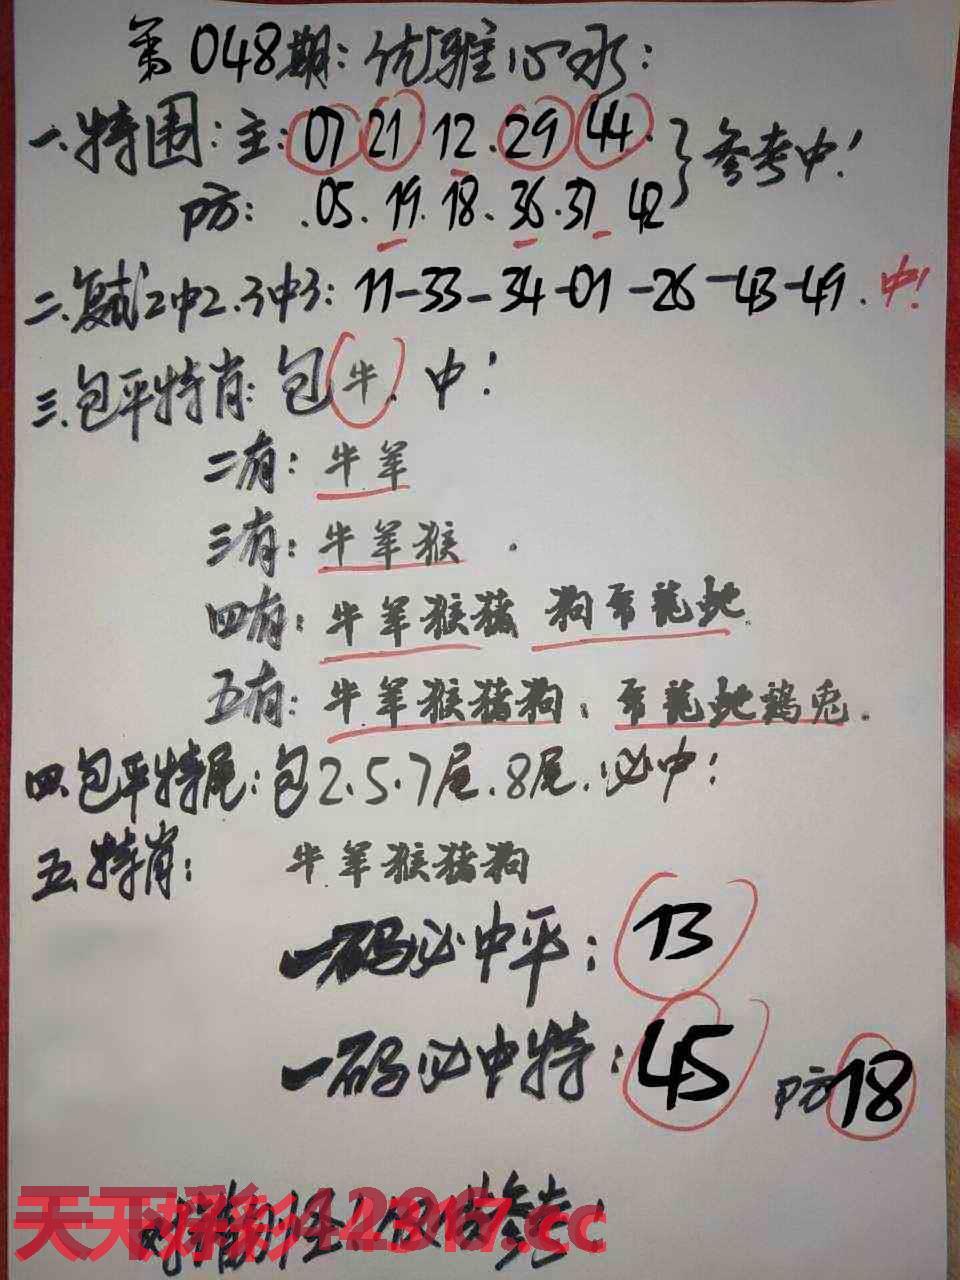 第048期:优雅心水:
一.特围:主:07 21 12.29 44. }参考中!
防:.05.19.18.36.37 42
二.复试2中2.3中3:11-33-34-01-26-43-49.中!
三.包平特肖:包牛.中!
二有:牛羊
三有:牛羊猴.
四有:牛羊猴猪 狗 龙蛇.
五有:牛羊猴猪狗: 龙蛇鸡兔.
四.包平特尾:包2.5.7尾.8尾.必中!
五.特肖: 牛羊猴猪狗
一码必中平:13
一码必中特:45 防18
参考!
天下彩 .cc